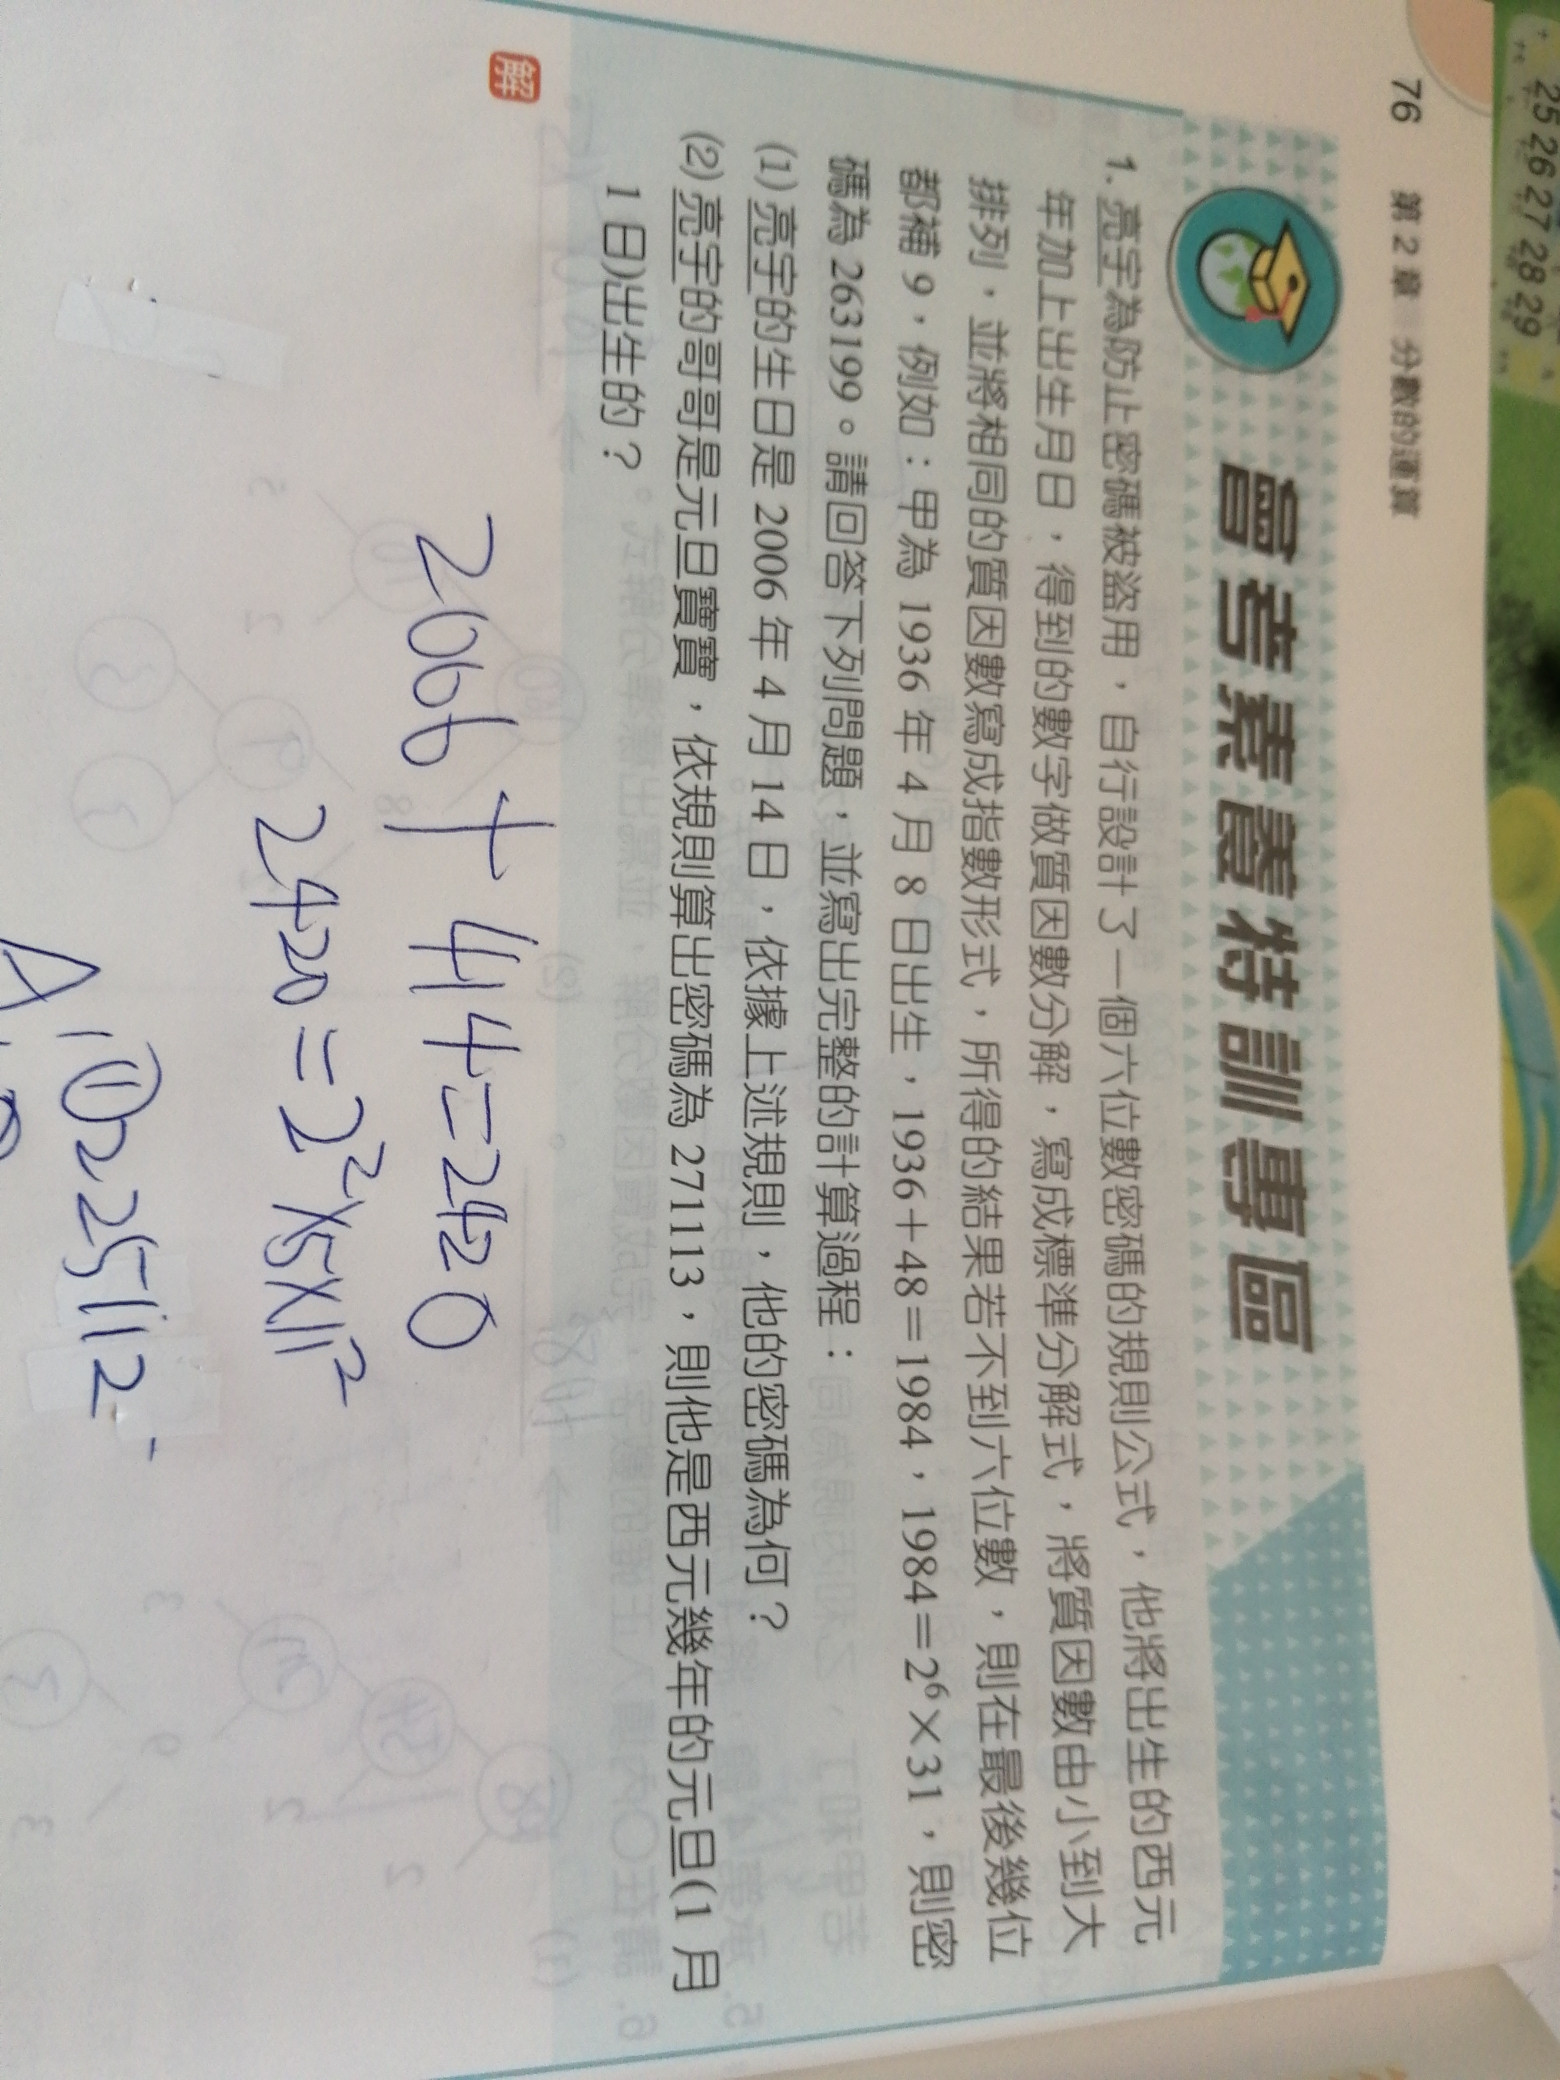 25 26 27 28 29
76 第2章 分數的運算
會考素養特訓專區
1. 亮宇為防止密碼被盜用，自行設計了一個六位數密碼的規則公式，他將出生的西元
年加上出生月日，得到的數字做質因數分解，寫成標準分解式，將質因數由小到大
排列，並將相同的質因數寫成指數形式，所得的結果若不到六位數，則在最後幾位
都補9，例如：甲為1936年4月8日出生，1936＋48＝1984，1984＝2⁶×31，則密
碼為263199。請回答下列問題，並寫出完整的計算過程：
(1) 亮宇的生日是2006年4月14日，依據上述規則，他的密碼為何？
(2) 亮宇的哥哥是元旦寶寶，依規則算出密碼為271113，則他是西元幾年的元旦(1月
1日)出生的？
解
2006+414=2420
2420=2²×5×11²
A:(1)225112